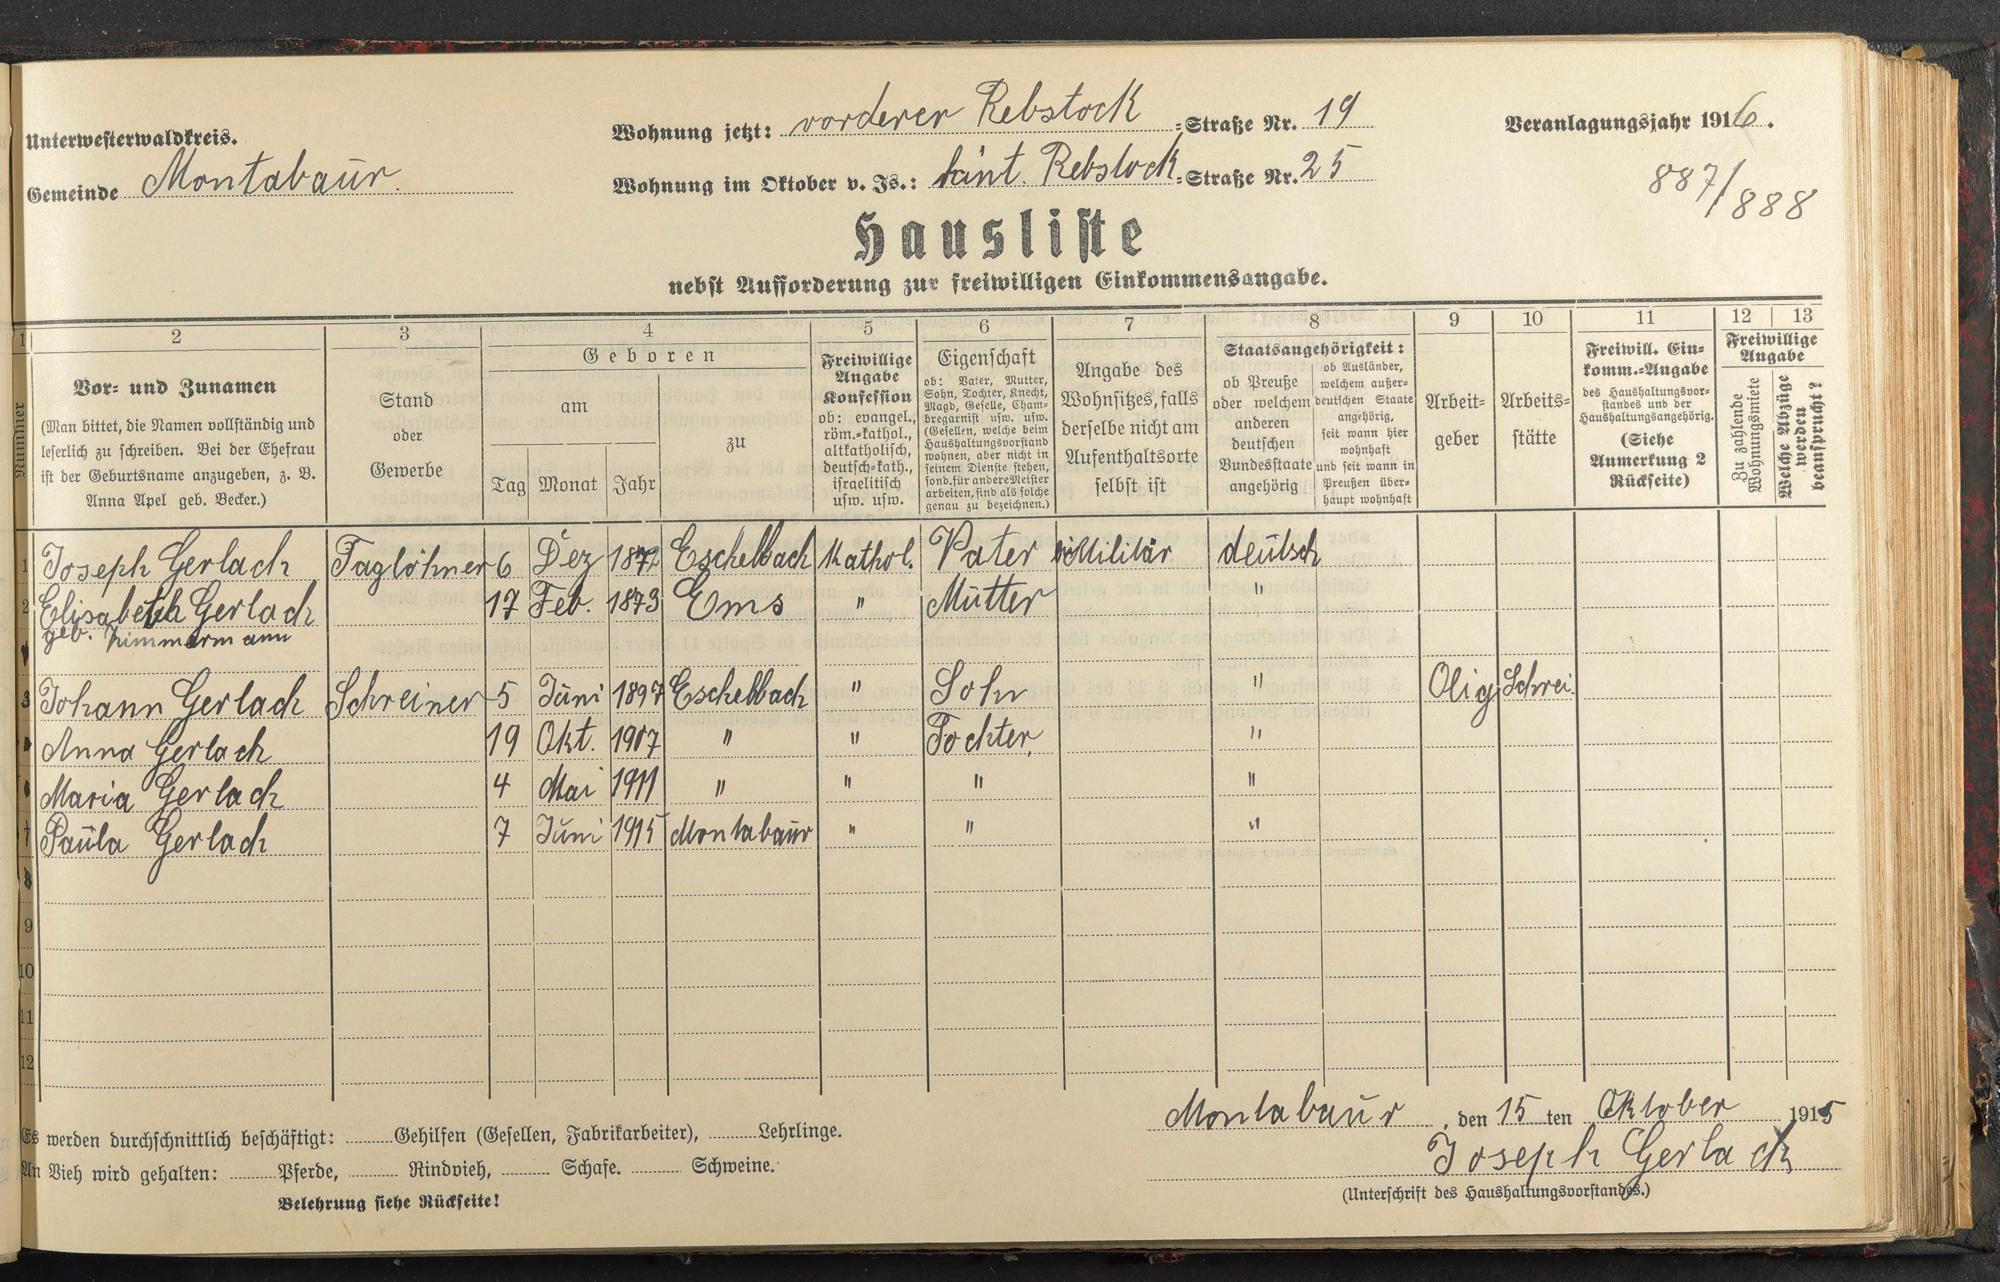 Unterwesterwaldkreis.
Gemeinde Montabaur.
Wohnung jetzt: vorderer Rebstock =Straße Nr. 19
Wohnung im Oktober v. Js.: hint. Rebstock =Straße Nr. 25
Veranlagungsjahr 1916.
887/888
Hausliste
nebst Aufforderung zur freiwilligen Einkommensangabe.
1 2 3 4 5 6 7 8 9 10 11 12 13
Nummer
Vor- und Zunamen
(Man bittet, die Namen vollständig und
leserlich zu schreiben. Bei der Ehefrau
ist der Geburtsname anzugeben, z. B.
Anna Apel geb. Becker.)
Stand
oder
Gewerbe
Geboren
am
Tag Monat Jahr
zu
Freiwillige
Angabe
Konfession
ob: evangel.,
röm.-kathol.,
altkatholisch,
deutsch-kath.,
israelitisch
usw. usw.
Eigenschaft
ob: Vater, Mutter,
Sohn, Tochter, Knecht,
Magd, Geselle, Cham-
bregarnist usw. usw.
(Gesellen, welche beim
Haushaltungsvorstand
wohnen, aber nicht in
seinem Dienste stehen,
sond. für andere Meister
arbeiten, sind als solche
genau zu bezeichnen.)
Angabe des
Wohnsitzes, falls
derselbe nicht am
Aufenthaltsorte
selbst ist
Staatsangehörigkeit:
ob Preuße
oder welchem
anderen
deutschen
Bundesstaate
angehörig
ob Ausländer,
welchem außer-
deutschen Staate
angehörig,
seit wann hier
wohnhaft
und seit wann in
Preußen über-
haupt wohnhaft
Arbeit-
geber
Arbeits-
stätte
Freiwill. Ein-
komm.-Angabe
des Haushaltungsvor-
standes und der
Haushaltungsangehörig.
(Siehe
Anmerkung 2
Rückseite)
Freiwillige
Angabe
Zu zahlende
Wohnungsmiete
Welche Abzüge
werden
beansprucht?
1 Joseph Gerlach Taglöhner 6 Dez 1872 Eschelbach Kathol. Vater Militär deutsch
2 Elisabeth Gerlach 17 Feb. 1873 Ems " Mutter "
geb. Zimmermann
3 Johann Gerlach Schreiner 5 Juni 1897 Eschelbach " Sohn " Olig Schrei.
Anna Gerlach 19 Okt. 1907 " " Tochter. "
Maria Gerlach 4 Mai 1911 " " " "
Paula Gerlach 7 Juni 1915 Montabaur " " "
8
9
10
11
12
Es werden durchschnittlich beschäftigt: Gehilfen (Gesellen, Fabrikarbeiter), Lehrlinge.
An Vieh wird gehalten: Pferde, Rindvieh, Schafe. Schweine.
Belehrung siehe Rückseite!
Montabaur, den 15ten Oktober 1915
Joseph Gerlach
(Unterschrift des Haushaltungsvorstandes.)